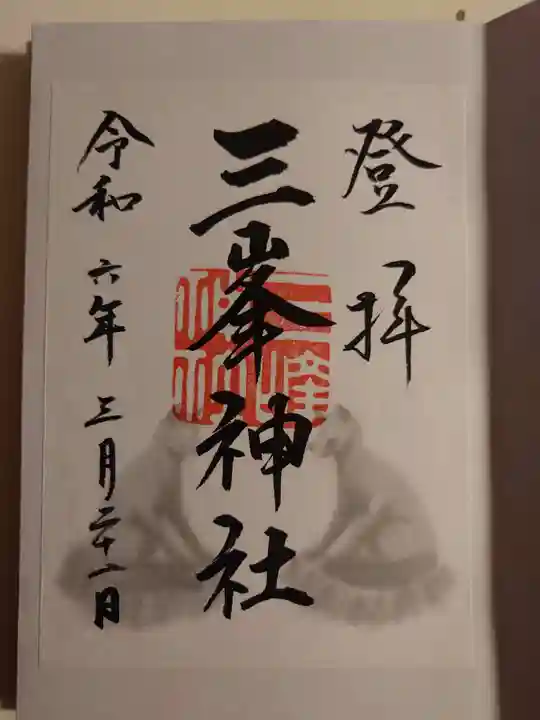 登拝
三峯神社
令和六年三月二十一日